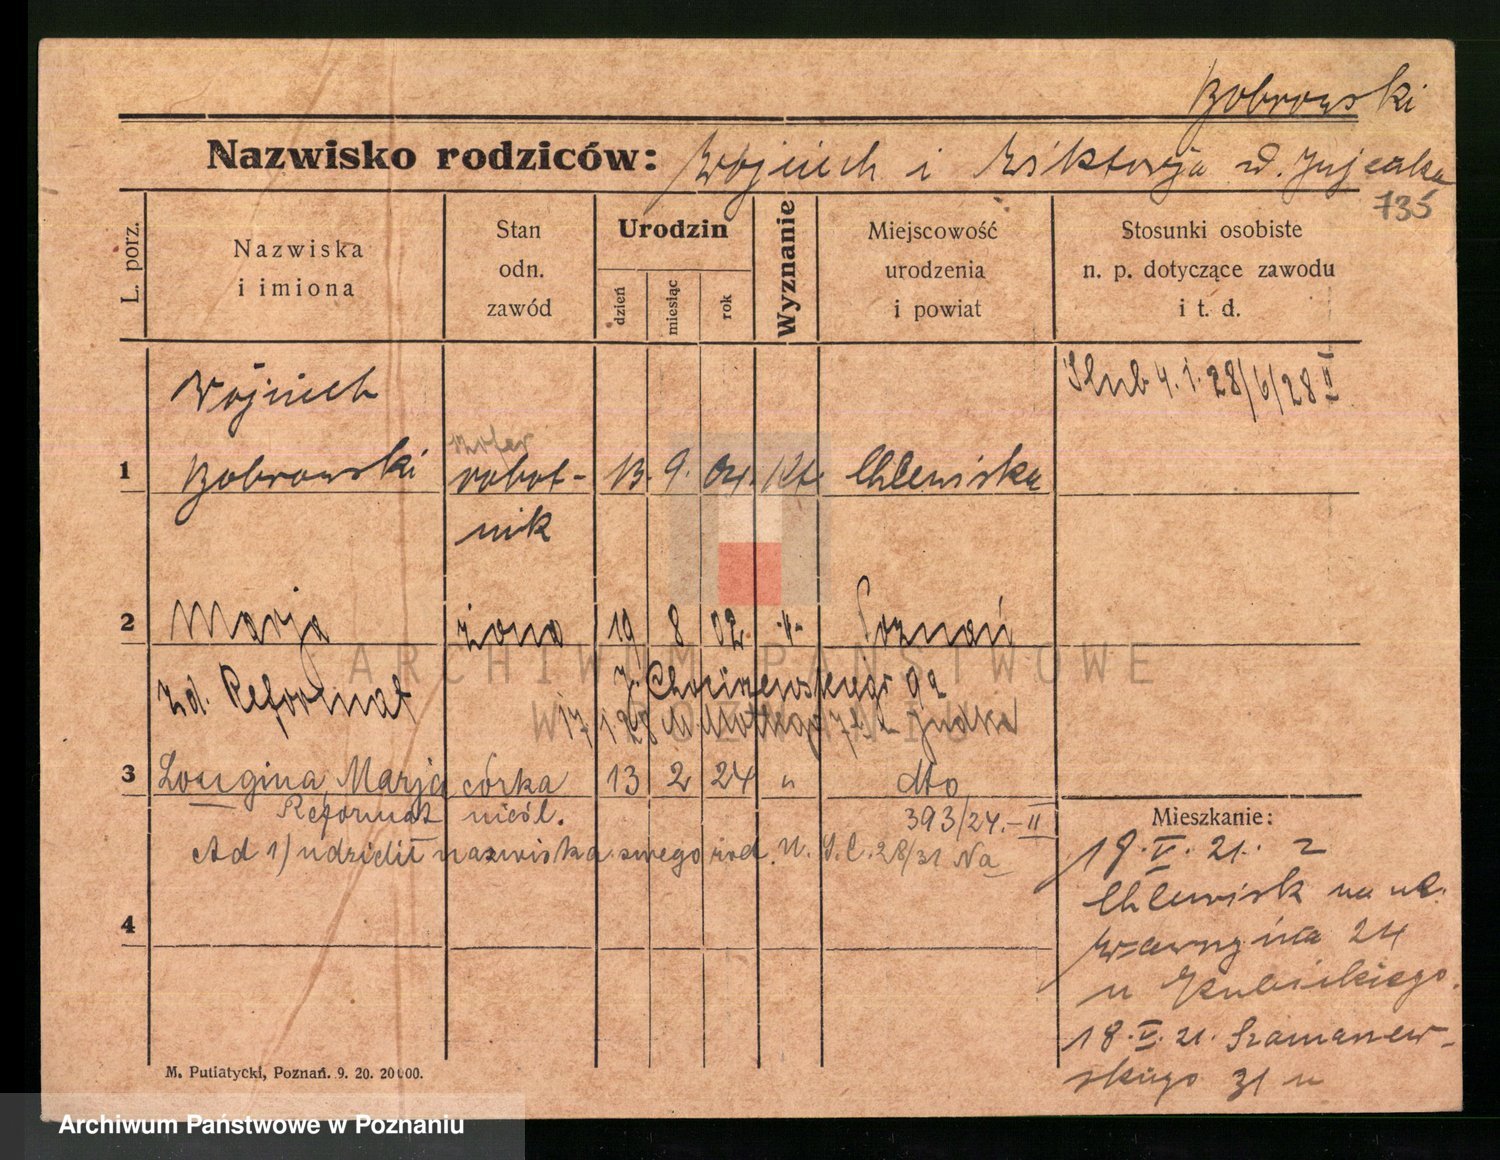 Bobrowski
Nazwisko rodziców: Wojciech i Wiktorja d.
735
L. porz.
Nazwiska
i imiona
Stan
odn.
zawód
Urodzin
dzień
miesiąc
rok
Wyznanie
Miejscowość
urodzenia
i powiat
Stosunki osobiste
n. p. dotyczące zawodu
i t. d.
Wojciech
Ślub 4. 1. 28/6/28 II
1 Bobrowski robot- 13. 9. 04. Kt. Chlewiska
nik
2 Marja żona 19 8 02 -"- Poznań
zd. Reformat
17 1 28
3 Longina Marja córka 13 2 24 " dto
Reformat nieśl. 393/24.-II
Ad 1) udzielił nazwiska swego rod. U. S. C. 28/31 Na
4
Mieszkanie:
19. V. 21. z
Chlewisk na ul.
Wawrzyńca 24
u Kubickiego.
18. V. 21. Szamarzew-
skiego 31 u
M. Putiatycki, Poznań. 9. 20. 20000.
ARCHIWUM PAŃSTWOWE
W POZNANIU
Archiwum Państwowe w Poznaniu